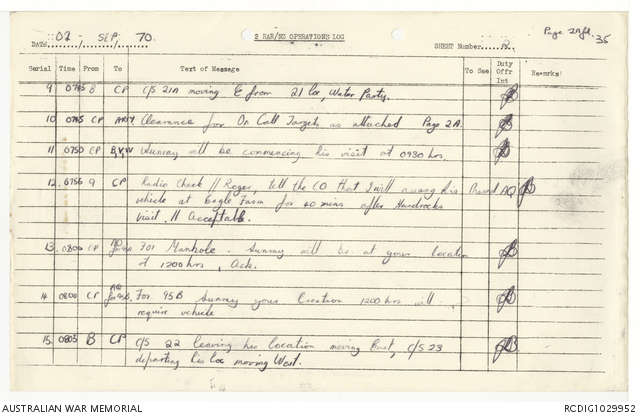 Page 2Afl. 35
2 RAR/NZ OPERATIONS LOG
DATE 02, SEP, 70
SHEET Number 2
Serial Time From To Text of Message To See Duty Offr Int Remarks
9 0745 8 CP C/S 21A moving E from 21 loc, Water Party.
10 0745 CP ARTY Clearance for On Call Targets as attached Page 2A.
11 0750 CP B,V,W Sunray will be commencing his visit at 0930 hrs.
12 0756 9 CP Radio Check // Roger, tell the CO that I will arrange his AQ
vehicle at Eagle Farm for 40 mins after Hardrocks
visit // Acceptable.
13 0800 CP 701 Manhole. Sunray will be at your location
at 1200 hrs, Ack.
14 0800 CP For 95B Sunray your location 1200 hrs will
require vehicle
15 0803 B CP C/S 22 leaving his location moving East, C/S 23
departing his loc moving West.
AUSTRALIAN WAR MEMORIAL
RCDIG1029952